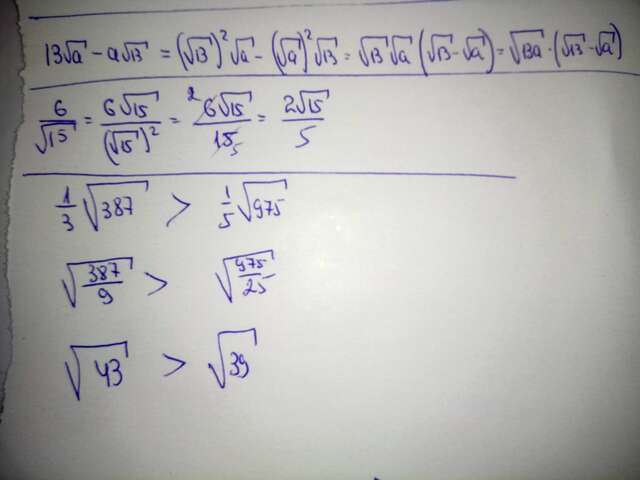 13√a - a√13 = (√13)²√a - (√a)²√13 = √13√a(√13-√a) = √13a·(√13-√a)
6/√15 = 6√15/(√15)² = ²6√15/15₅ = 2√15/5
1/3 √387 > 1/5 √975
√387/9 > √975/25
√43 > √39